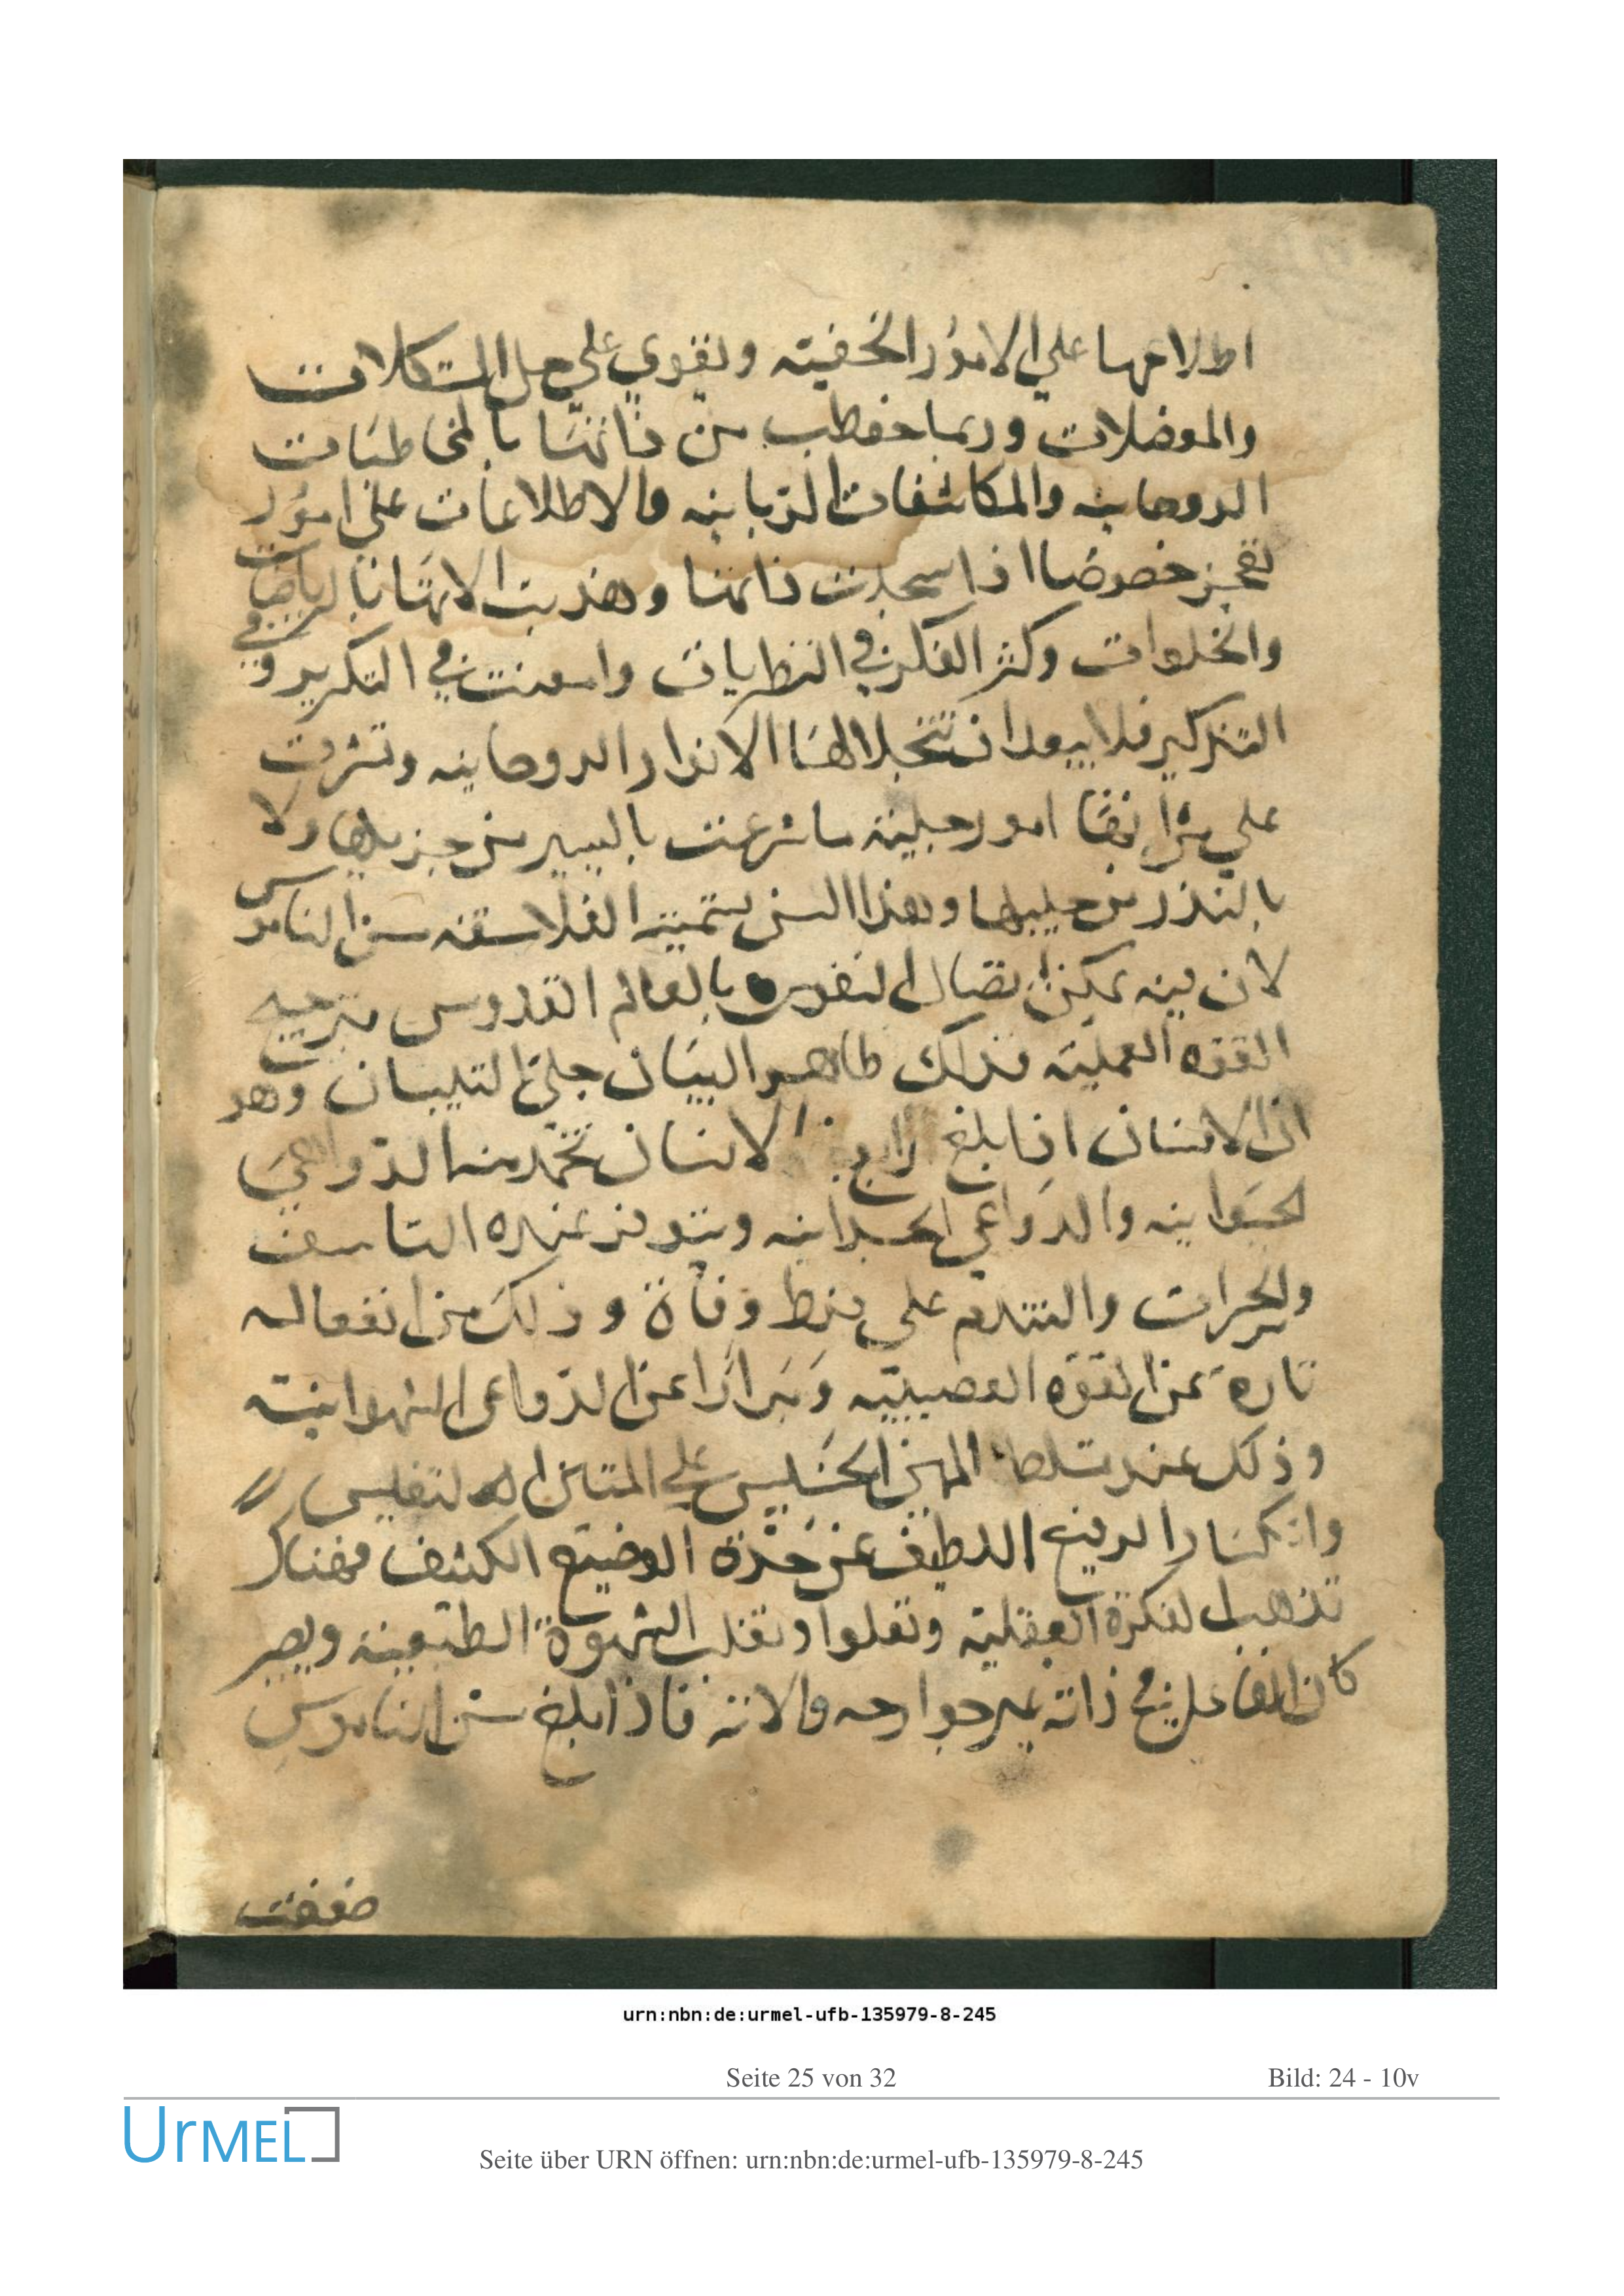 اطلاعها علي الامور الخفيته وتقوي علي حل المشكلات
والموضلات وربما خطب من ذاتها بالمخاطبات
الروحانيه والمكاشفات الربانيه والاطلاعات علي امور
تعجز خصوصا اذا ذاتها وهذبت الاتها بالرياضات
والخلوات وكثر الفكر في النظريات وامعنت في التكرير وفي
التذكير فلا يبعد ان تتجلا لها الانوار الروحانيه وتشرف
علي امور جليته ما بالسير من ولا
بالنذر من وهذا السن الفلاسفه سن الناموس
لان فيه يمكن اتصال النفوس بالعالم القدوس
القوه العمليه فذلك ظاهر البيان جلي التلبيان وهو
ان الانسان اذا بلغ الانسان تخمد منه الدواعي
الحيوانيه والدواعي الجسدانيه عنده التاسف
والحسرات والتندم علي فرط وفاة وذلك من انفعاله
تارة عن القوه العصبيته ومرارا عن الدواعي الشهوانيته
وذلك عند تسلط المهين الخسيس علي
وانكسار الرفيع اللطيف عن حدة الوضيع الكثف فهناك
تذهب الفكرة العقليته وتعلوا وتغلب الشهوة الطبيعيته ويصير
كان الفاعل في ذاته غير جوارحه والاته فاذا بلغ سن الناموس
ضعفت
urn:nbn:de:urmel-ufb-135979-8-245
Seite 25 von 32
Bild: 24 - 10v
UrMEL
Seite über URN öffnen: urn:nbn:de:urmel-ufb-135979-8-245